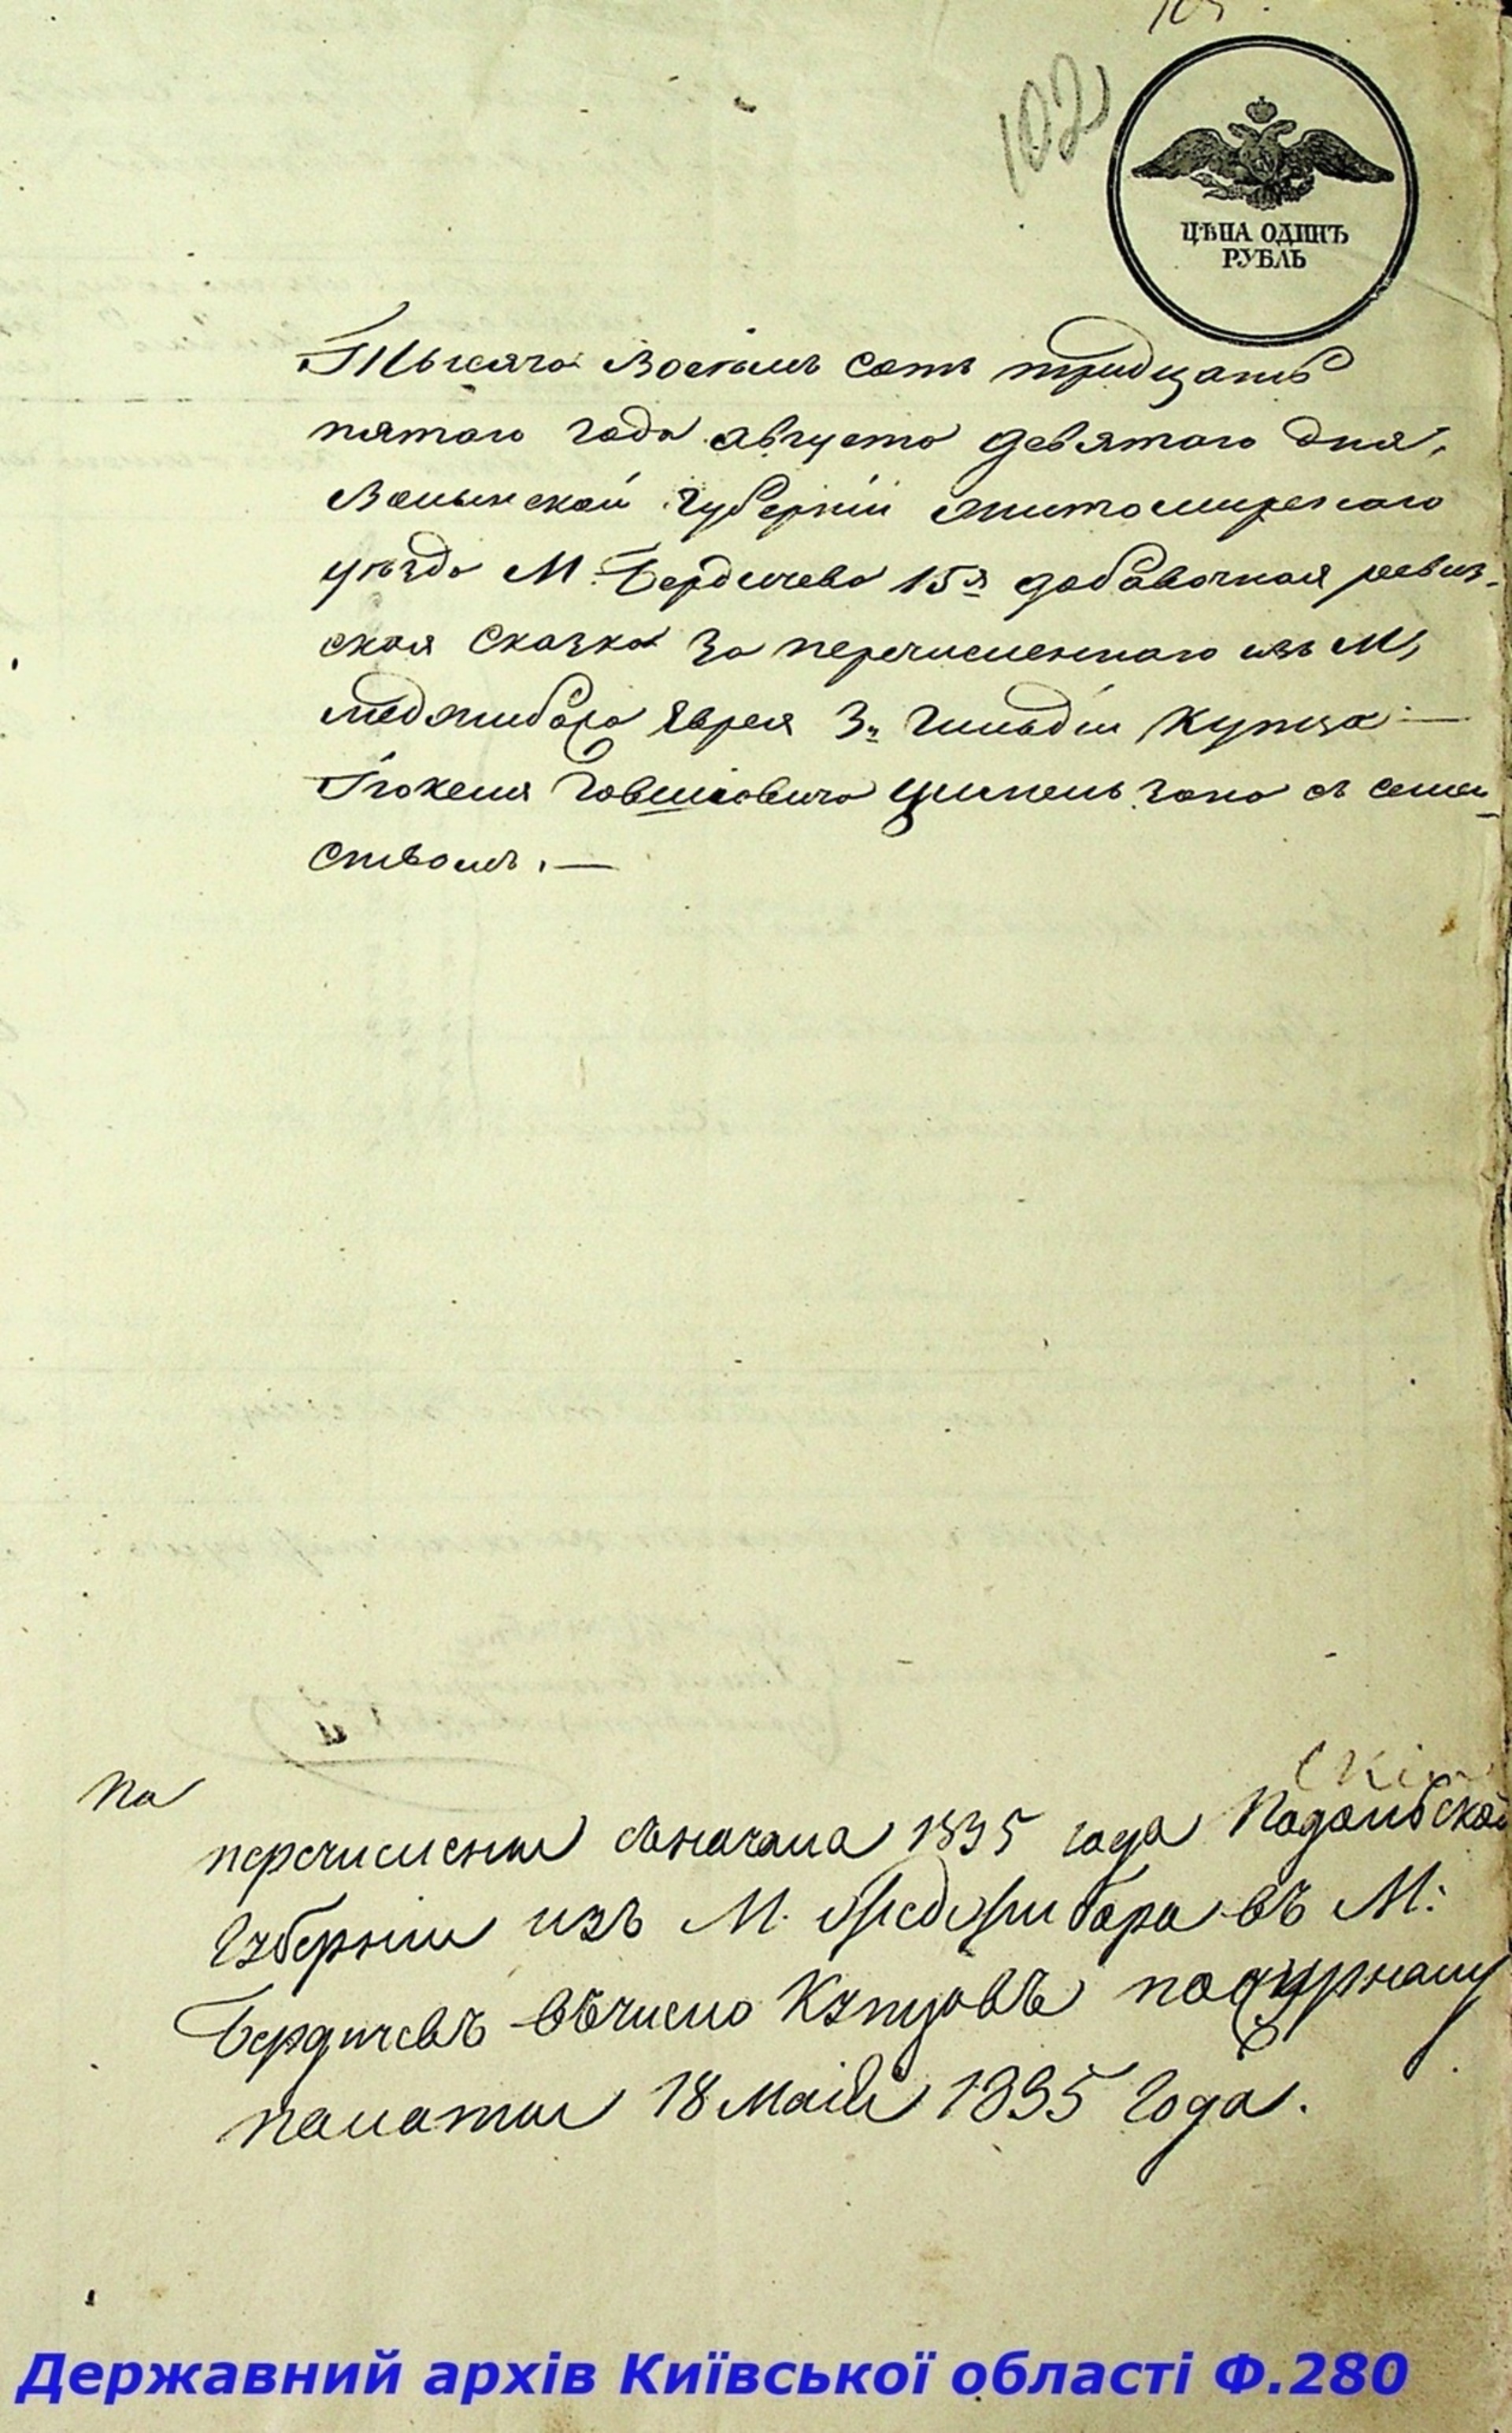 102
ЦѢНА ОДИНЪ
РУБЛЬ
Тысяча Восемь сотъ тридцать
пятого года августа девятого дня,
Волынской губерніи житомирского
уѣзда М. Бердичева 15я добавочная ревиз-
ская Сказка За перечисленного изъ М,
меджибора Еврея 3й гильдіи купца —
Іовшіовича с семей-
ством. —
По
перечислении съначала 1835 года Подольской
Губернии изъ М. Меджибора въ М:
Бердичевъ вѣчисло Купцовъ пожурналу
палаты 18 маія 1835 Года.
Державний архів Київської області Ф.280